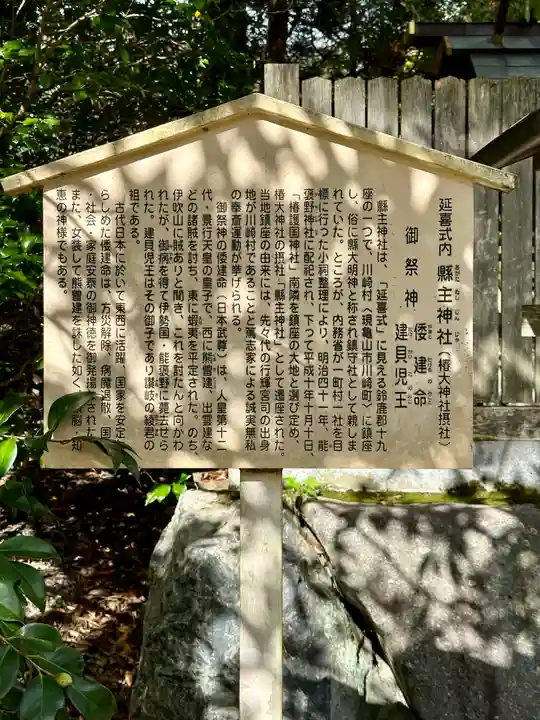 延喜式内 縣主神社（椿大神社摂社）
あがた ぬし じん じゃ
御祭神 倭建命
やまと たける の みこと
建貝児王
縣主神社は、「延喜式」に見える鈴鹿郡十九
座の一つで、川崎村（現亀山市川崎町）に鎮座
し、俗に縣大明神と称されて鎮守社として親しま
れていた。ところが、内務省が一町村一社を目
標に行つた小祠整理により、明治四十一年、能
褒野神社に配祀され、下って平成十年十月一日、
「椿護国神社」南隣を鎮座の大地と選び定め、
椿大神社の摂社「縣主神社」として遷座された。
当地鎮座の由来には、先々代の行輝宮司の出身
地が川崎村であることと篤志家による誠実無私
の奉斎運動が挙げられる。
御祭神の倭建命（日本武尊）は、人皇第十二
代・景行天皇の皇子で、西に熊曽建、出雲建な
どの諸賊を討ち、東に蝦夷を平定された。のち、
伊吹山に賊ありと聞き、これを討たんと向かわ
れたが、御病を得て伊勢国、能褒野に薨去せら
れた。建貝児王はその御子であり讃岐の綾君の
祖である。
古代日本に於いて東西に活躍、国家を安定
らしめた倭建命は、方災解除、病魔退散、国
・社会・家庭安泰の御神徳を御発揚された
また、女装して熊曽建を誅した如く、頭脳・知
恵の神様でもある。